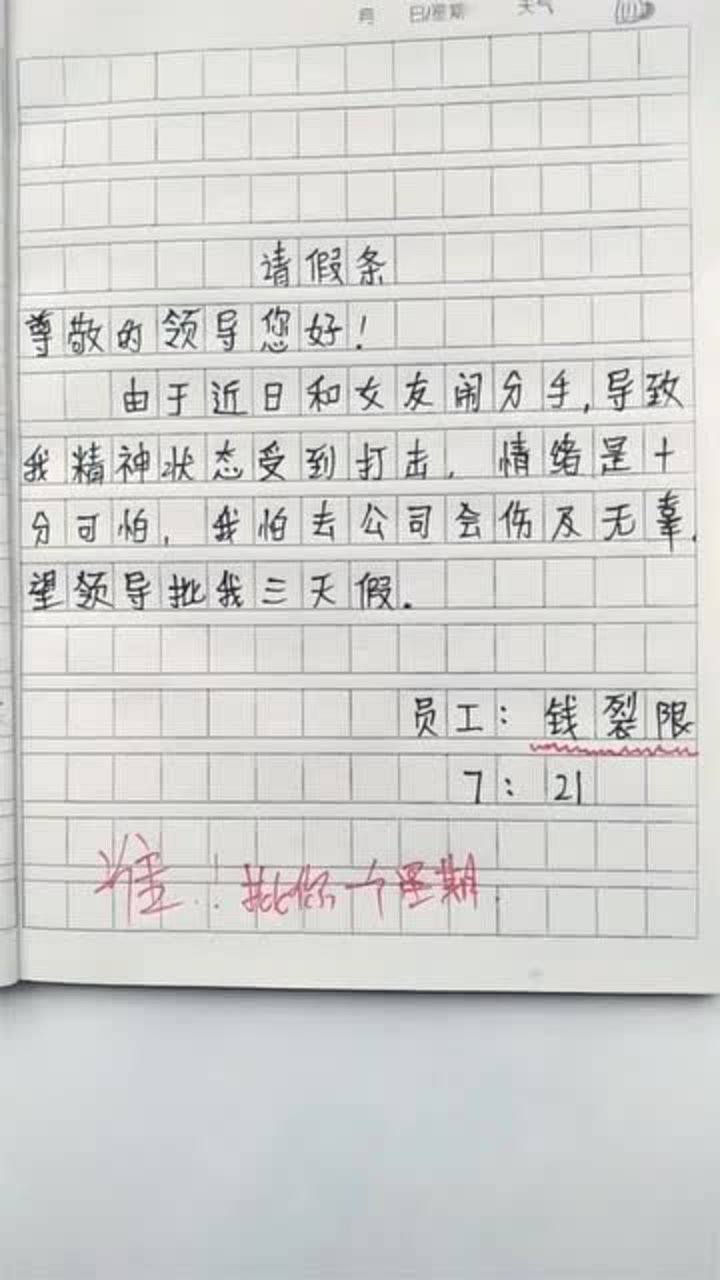 月 日/星期 天气
请假条
尊敬的领导您好!
由于近日和女友闹分手,导致
我精神状态受到打击,情绪是十
分可怕,我怕去公司会伤及无辜,
望领导批我三天假.
员工:钱裂限
7:21
准!批你一个星期.